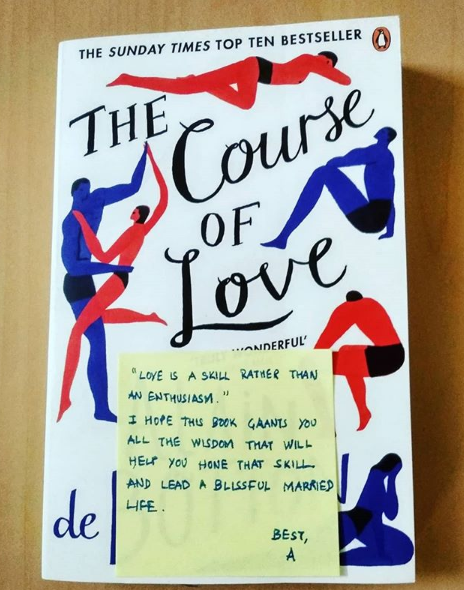 THE SUNDAY TIMES TOP TEN BESTSELLER
THE
Course
OF
Love
WONDERFUL'
"LOVE IS A SKILL RATHER THAN
AN ENTHUSIASM."
I HOPE THIS BOOK GRANTS YOU
ALL THE WISDOM THAT WILL
HELP YOU HONE THAT SKILL
AND LEAD A BLISSFUL MARRIED
LIFE.
BEST,
A
de